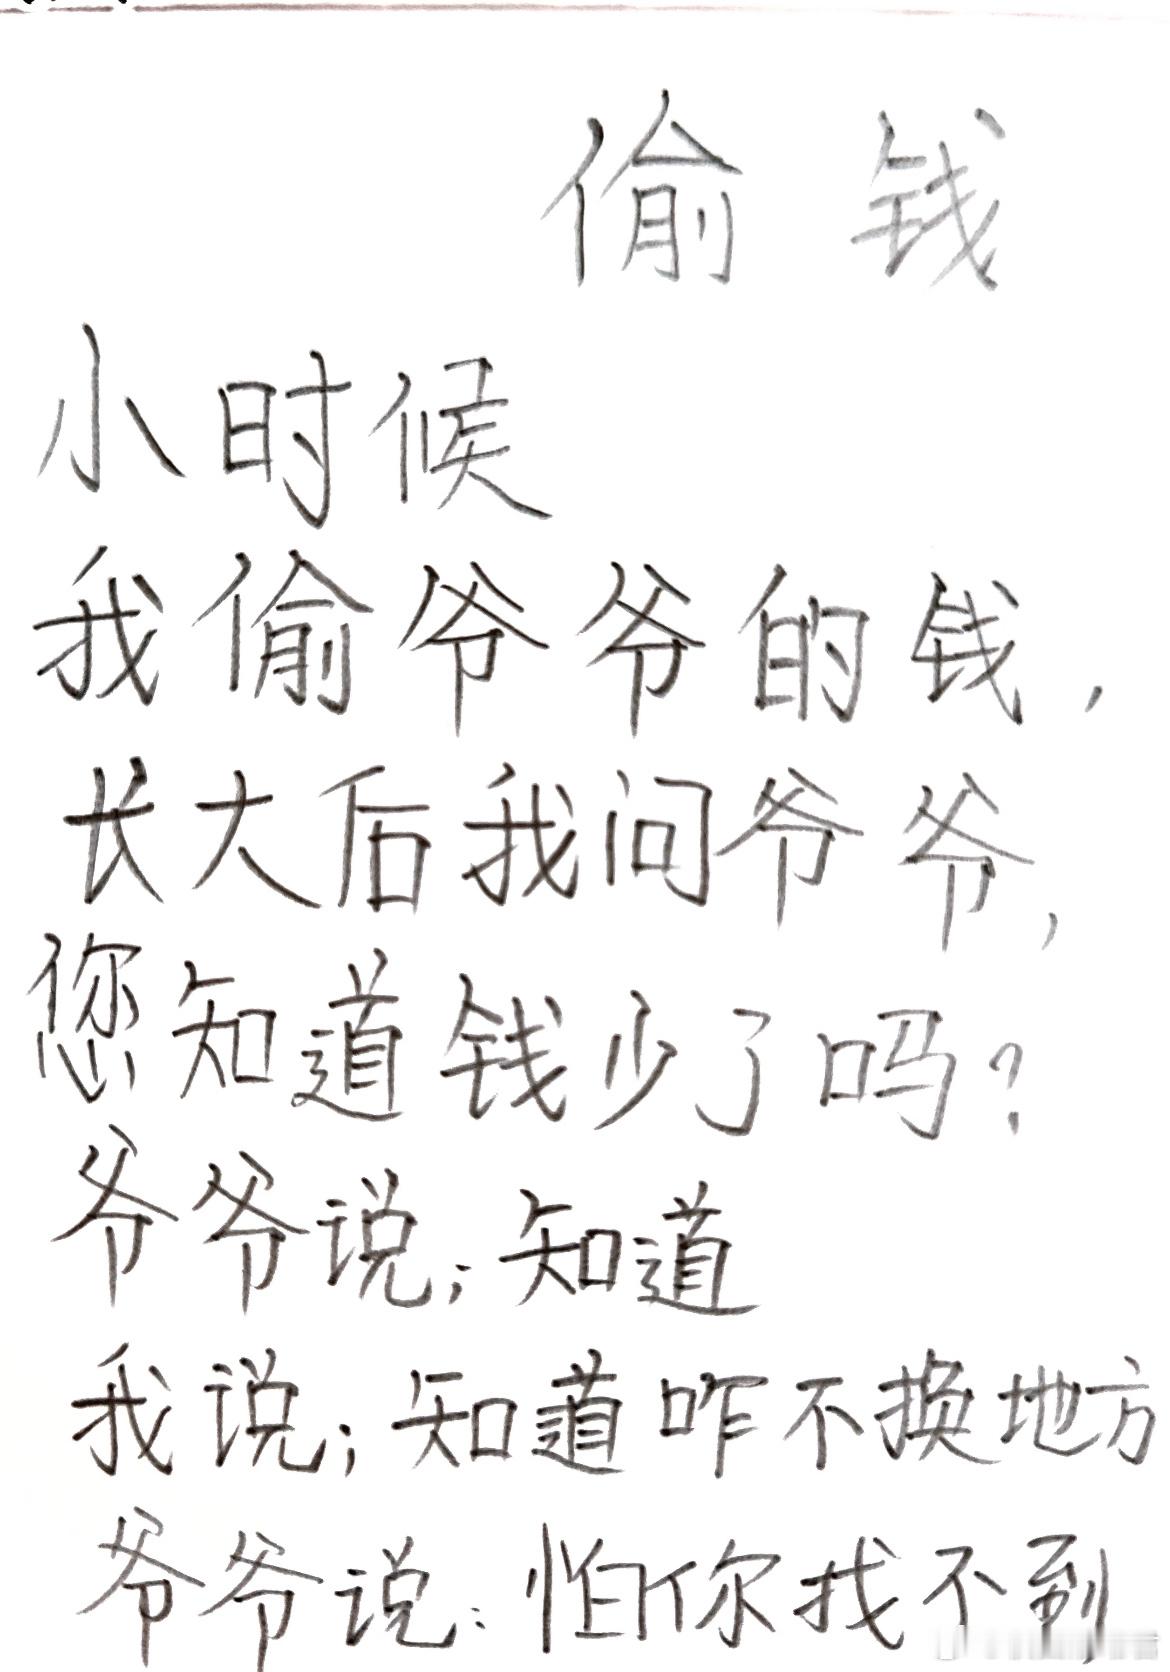 偷钱
小时候
我偷爷爷的钱,
长大后我问爷爷,
您知道钱少了吗?
爷爷说;知道
我说;知道咋不换地方
爷爷说:怕你找不到